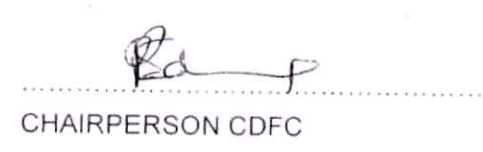 CHAIRPERSON CDFC